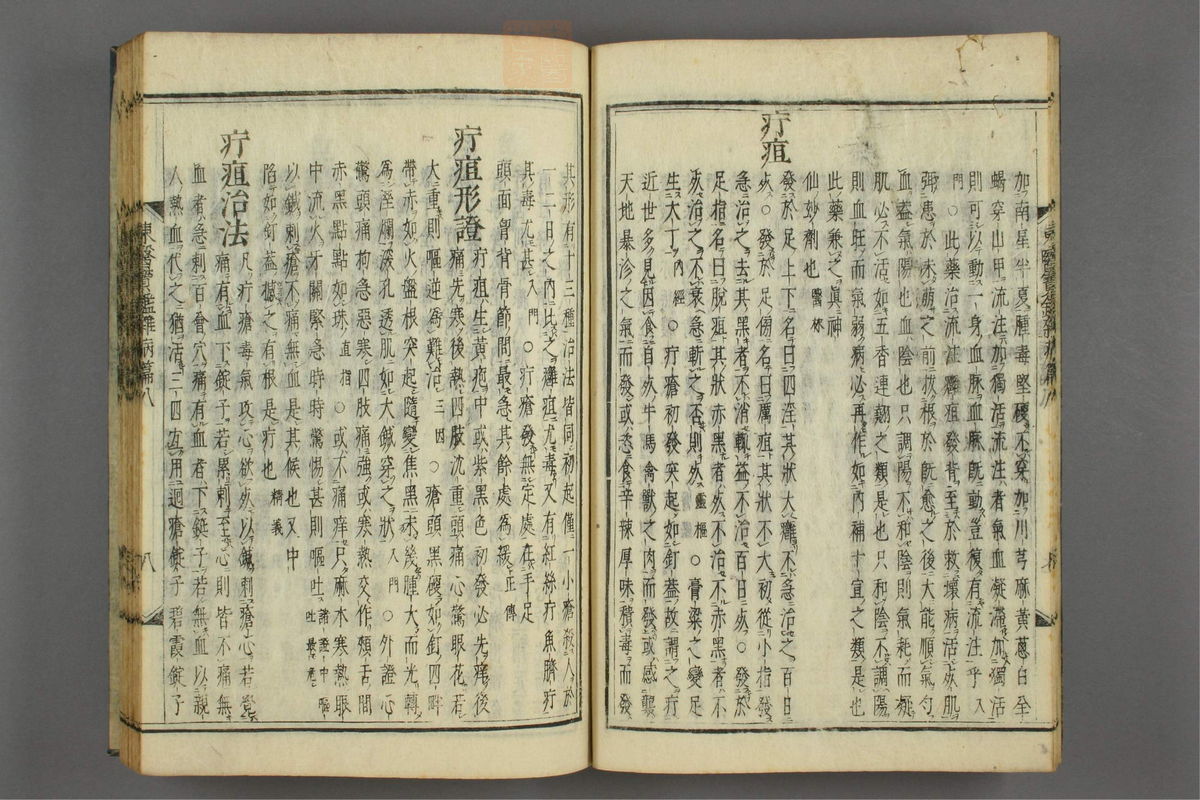 加南星半夏腫毒堅硬不穿加川芎麻黃蔥白全
蝎穿山甲流注加獨活流注者氣血凝滯加獨活
則可以動一身血脉血脉既動豈復有流注乎入
門○此藥治流注癰疽發背至於救壞病活死肌
弭患於未萌之前拔根於既愈之後大能順氣勻
血盖氣陽也血陰也只調陽不和陰則氣耗而
肌必不活如五香連翹之類是也只和陰不調陽
則血旺而氣弱病必再作如內補十宣之類是也
此藥兼之眞神
仙妙劑也 醫林
疔疽
發於足上下名曰四淫其狀大癰不急治之百日
死○發於足傍名曰厲疽其狀不大初從小指發
急治之去其黑者不消輒益不治百日死○發於
足指名曰脫疽其狀赤黑者死不治不赤黑者不
死治之不衰急斬之否則死 靈樞 ○膏粱之變足
生大丁 內經 ○疔瘡初發突起如釘盖故謂之疔
近世多見因食自死牛馬禽獸之肉而發或感襲
天地暴沴之氣而發或恣食辛辣厚味積毒而發
其形有十三種治法皆同初起僅一小瘡殺人於
一二日之內比之癰疽尤毒又有紅絲疔魚臍疔
其毒尤甚 入門 ○疔瘡發無定處在手足
頭面胷背骨節間最急其餘處為緩 正傳
疔疽形證
疔疽生黃疱中或紫黑色初發必先痒後
痛先寒後熱四肢沉重頭痛心驚眼花若
大重則嘔逆爲難治 三因 ○瘡頭黑硬如釘四畔
帶赤如火盤根突起隨變焦黑未幾腫大而光轉
為濕爛深孔透肌如大鍼穿之狀 入門 ○外證心
驚頭痛拘急惡寒四肢痛強或寒熱交作頰舌間
赤黑點點如珠 直指 ○或不痛痒只麻木寒熱眼
中流火牙關緊急時時驚惕甚則嘔吐 諸證中嘔吐最危
以鍼刺瘡不痛無血是其候也又中
陷如釘盖撼之有根是疔也 精義
疔疽治法
凡疔瘡毒氣攻心欲死以鍼刺瘡心若覺
痛有血下錠子若累刺至心則皆不痛無
血者急刺百會穴痛有血者下錠子若無血以親
人熱血代之猶活三四方用迴瘡錠子碧霞錠子
東醫寶鑑雜病篇八
八